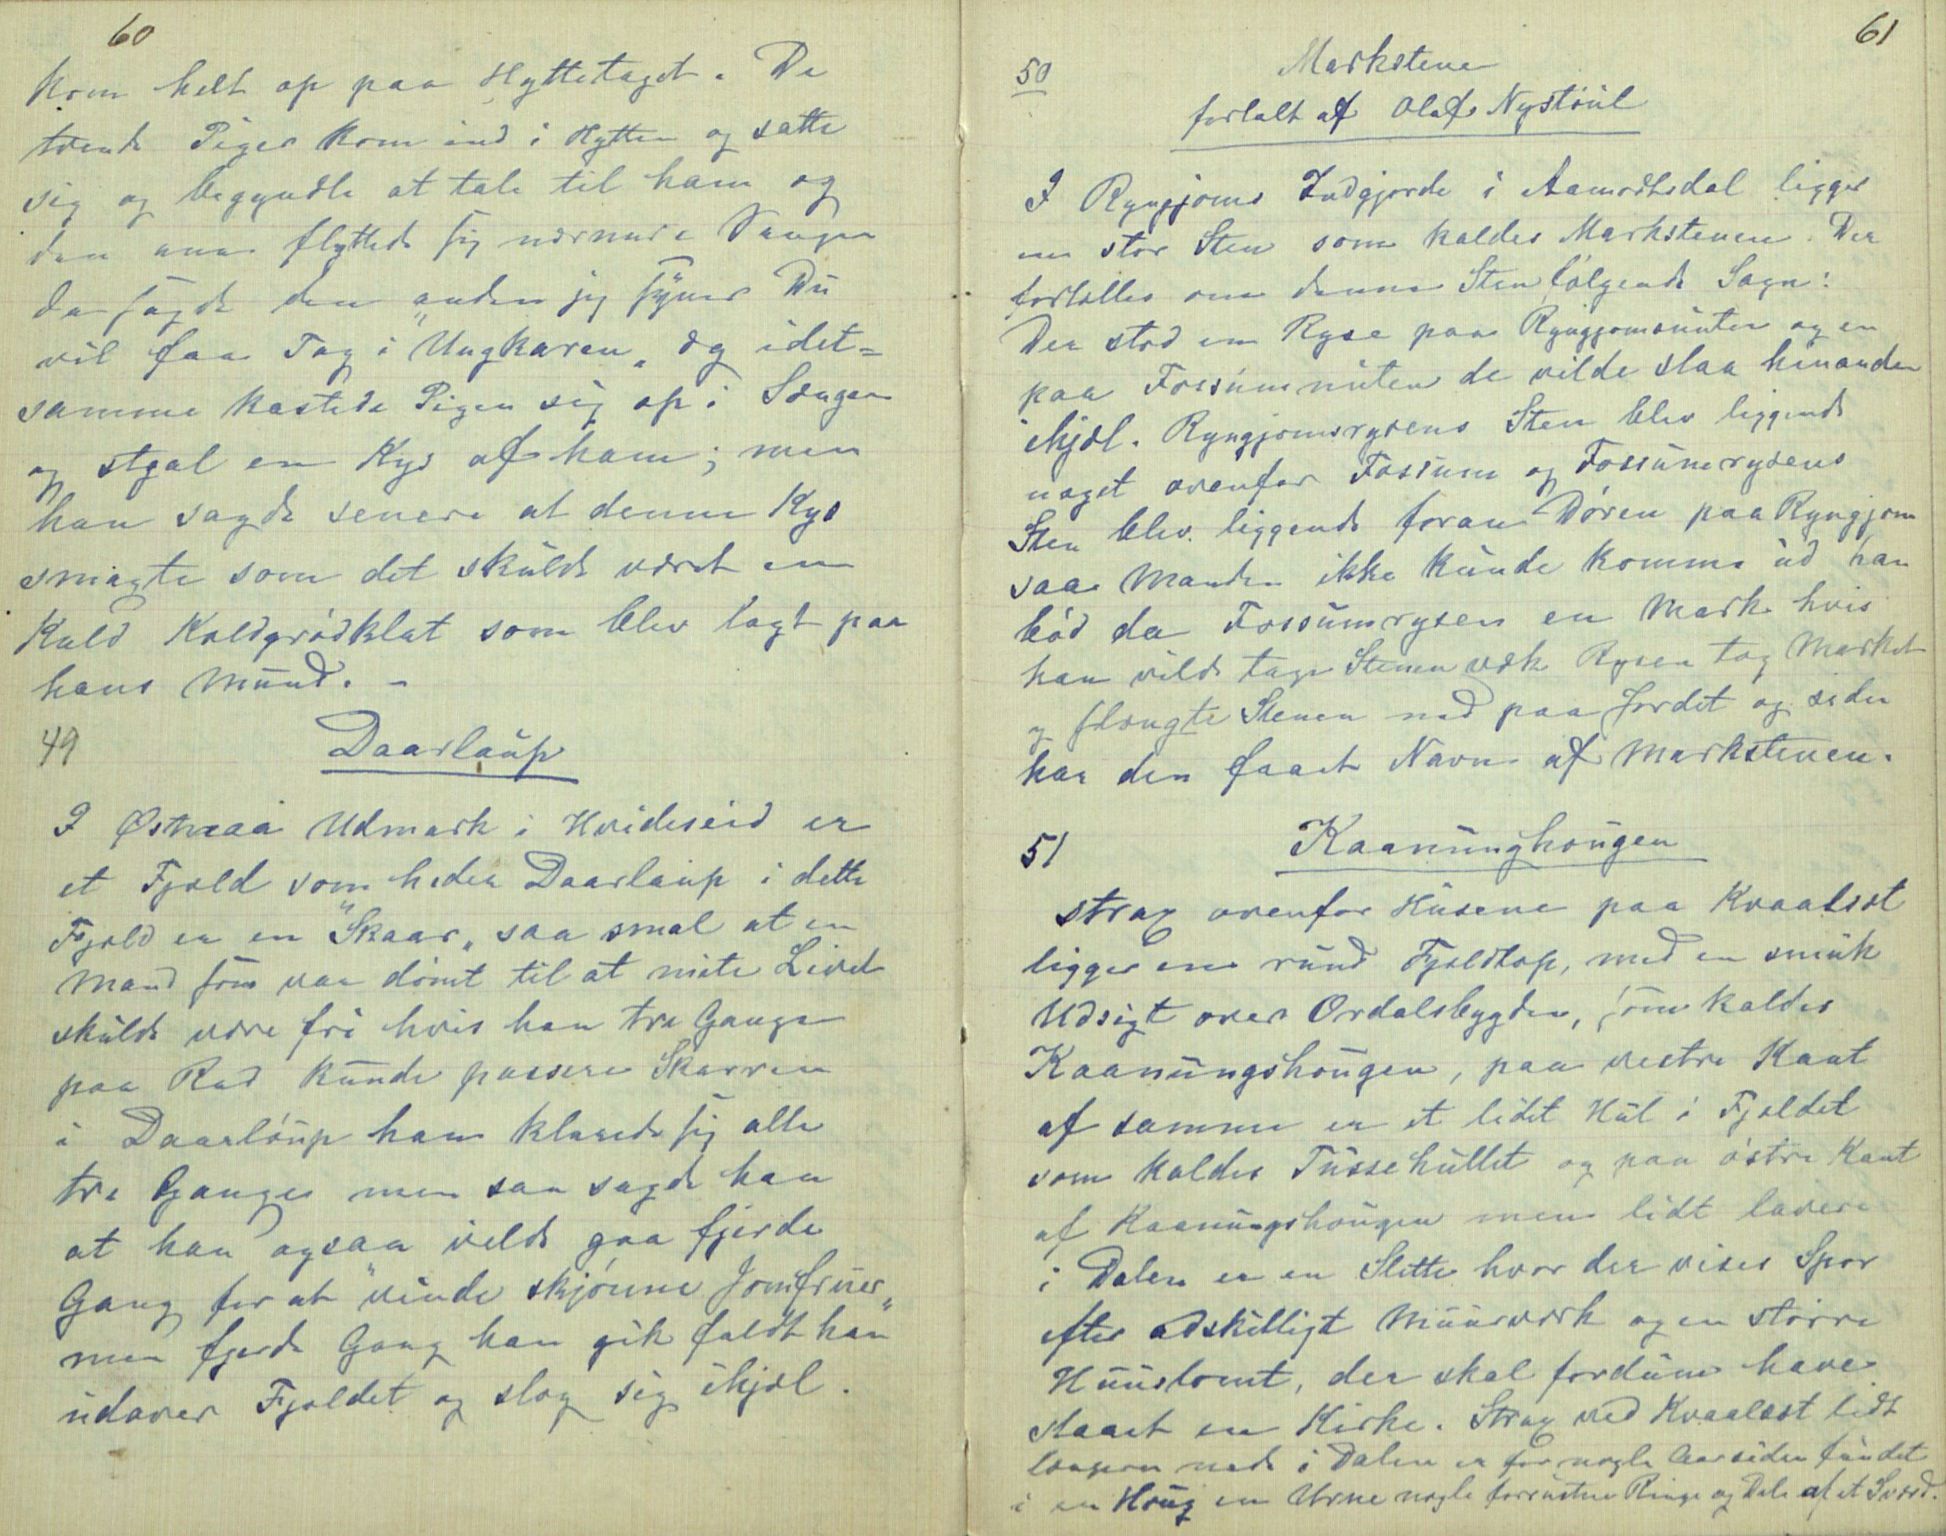 60
kom helt op paa Hyttetaget. De
tvende Piger kom ind i Hytten og satte
sig og begyndte at tale til ham og
den ene flyttede sig nærmere Sengen
da sagde den anden jeg synes Du
vil faa Tag i "Ungkaren„ og idet=
samme kastede Pigen sig op i Sengen
og stjal en Kys af ham; men
han sagde senere at denne Kys
smagte som det skulde været en
Kald Koldgrødklat som blev lagt paa
hans Mund. -
49 Daarlaup
I Østraaa Udmark i Hvideseid er
et Fjeld som heder Daarlaup i dette
Fjeld er en "Skaar„ saa smal at en
Mand som var dømt til at miste Livet
skulde være fri hvis han tre Gange
paa Rad kunde passere Skarren
i Daarløup han klarede sig alle
tre Ganger men saa sagde han
at han ogsaa vilde gaa fjerde
Gang for at "vinde skjønne Jomfruer„
men fjerde Gang han gik faldt han
udover Fjeldet og slog sig ihjel.
61
50 Markstene
fortalt af Olaf Nystøul
I Ryngjoms Indgjerde i Aamodtsdal ligger
en stor Sten som kaldes Markstenen. Der
fortælles om denne Sten følgende Sagn:
Der stod en Ryse paa Ryngjomsnuten og en
paa Fossumnuten de vilde slaa hinanden
ihjel. Ryngjomsrysens Sten blev liggende
noget ovenfor Fossum og Fossumrysens
Sten blev liggende foran Døren paa Ryngjom
saa Manden ikke kunde komme ud han
bød da Fossumrysen en Mark hvis
han vilde tage Stenen væk Rysen tog Market
og slængte Stenen ned paa Jordet og siden
har den faaet Navn af Markstenen.
51 Kaanunghougen
strax ovenfor Husene paa Kvaalsst
ligger en rund Fjeldtop, med en smuk
Udsigt over Ordalsbygden, som kaldes
Kaanungshougen, paa vestre Kant
af samme er et lidet Hul i Fjeldet
som kaldes Tussehullet og paa østre Kant
af Kaanungshougen men lidt lavere
i Dalen er en Slette hvor der vises Spor
efter adskilligt Muurværk og en større
Huustomt, der skal fordum have
staaet en Kirke. Strax ved Kvaalsst lidt
længere nede i Dalen er for nogle Aar siden fundet
i en Houg en Urne nogle forrustne Ringe og Dele af et Sværd.